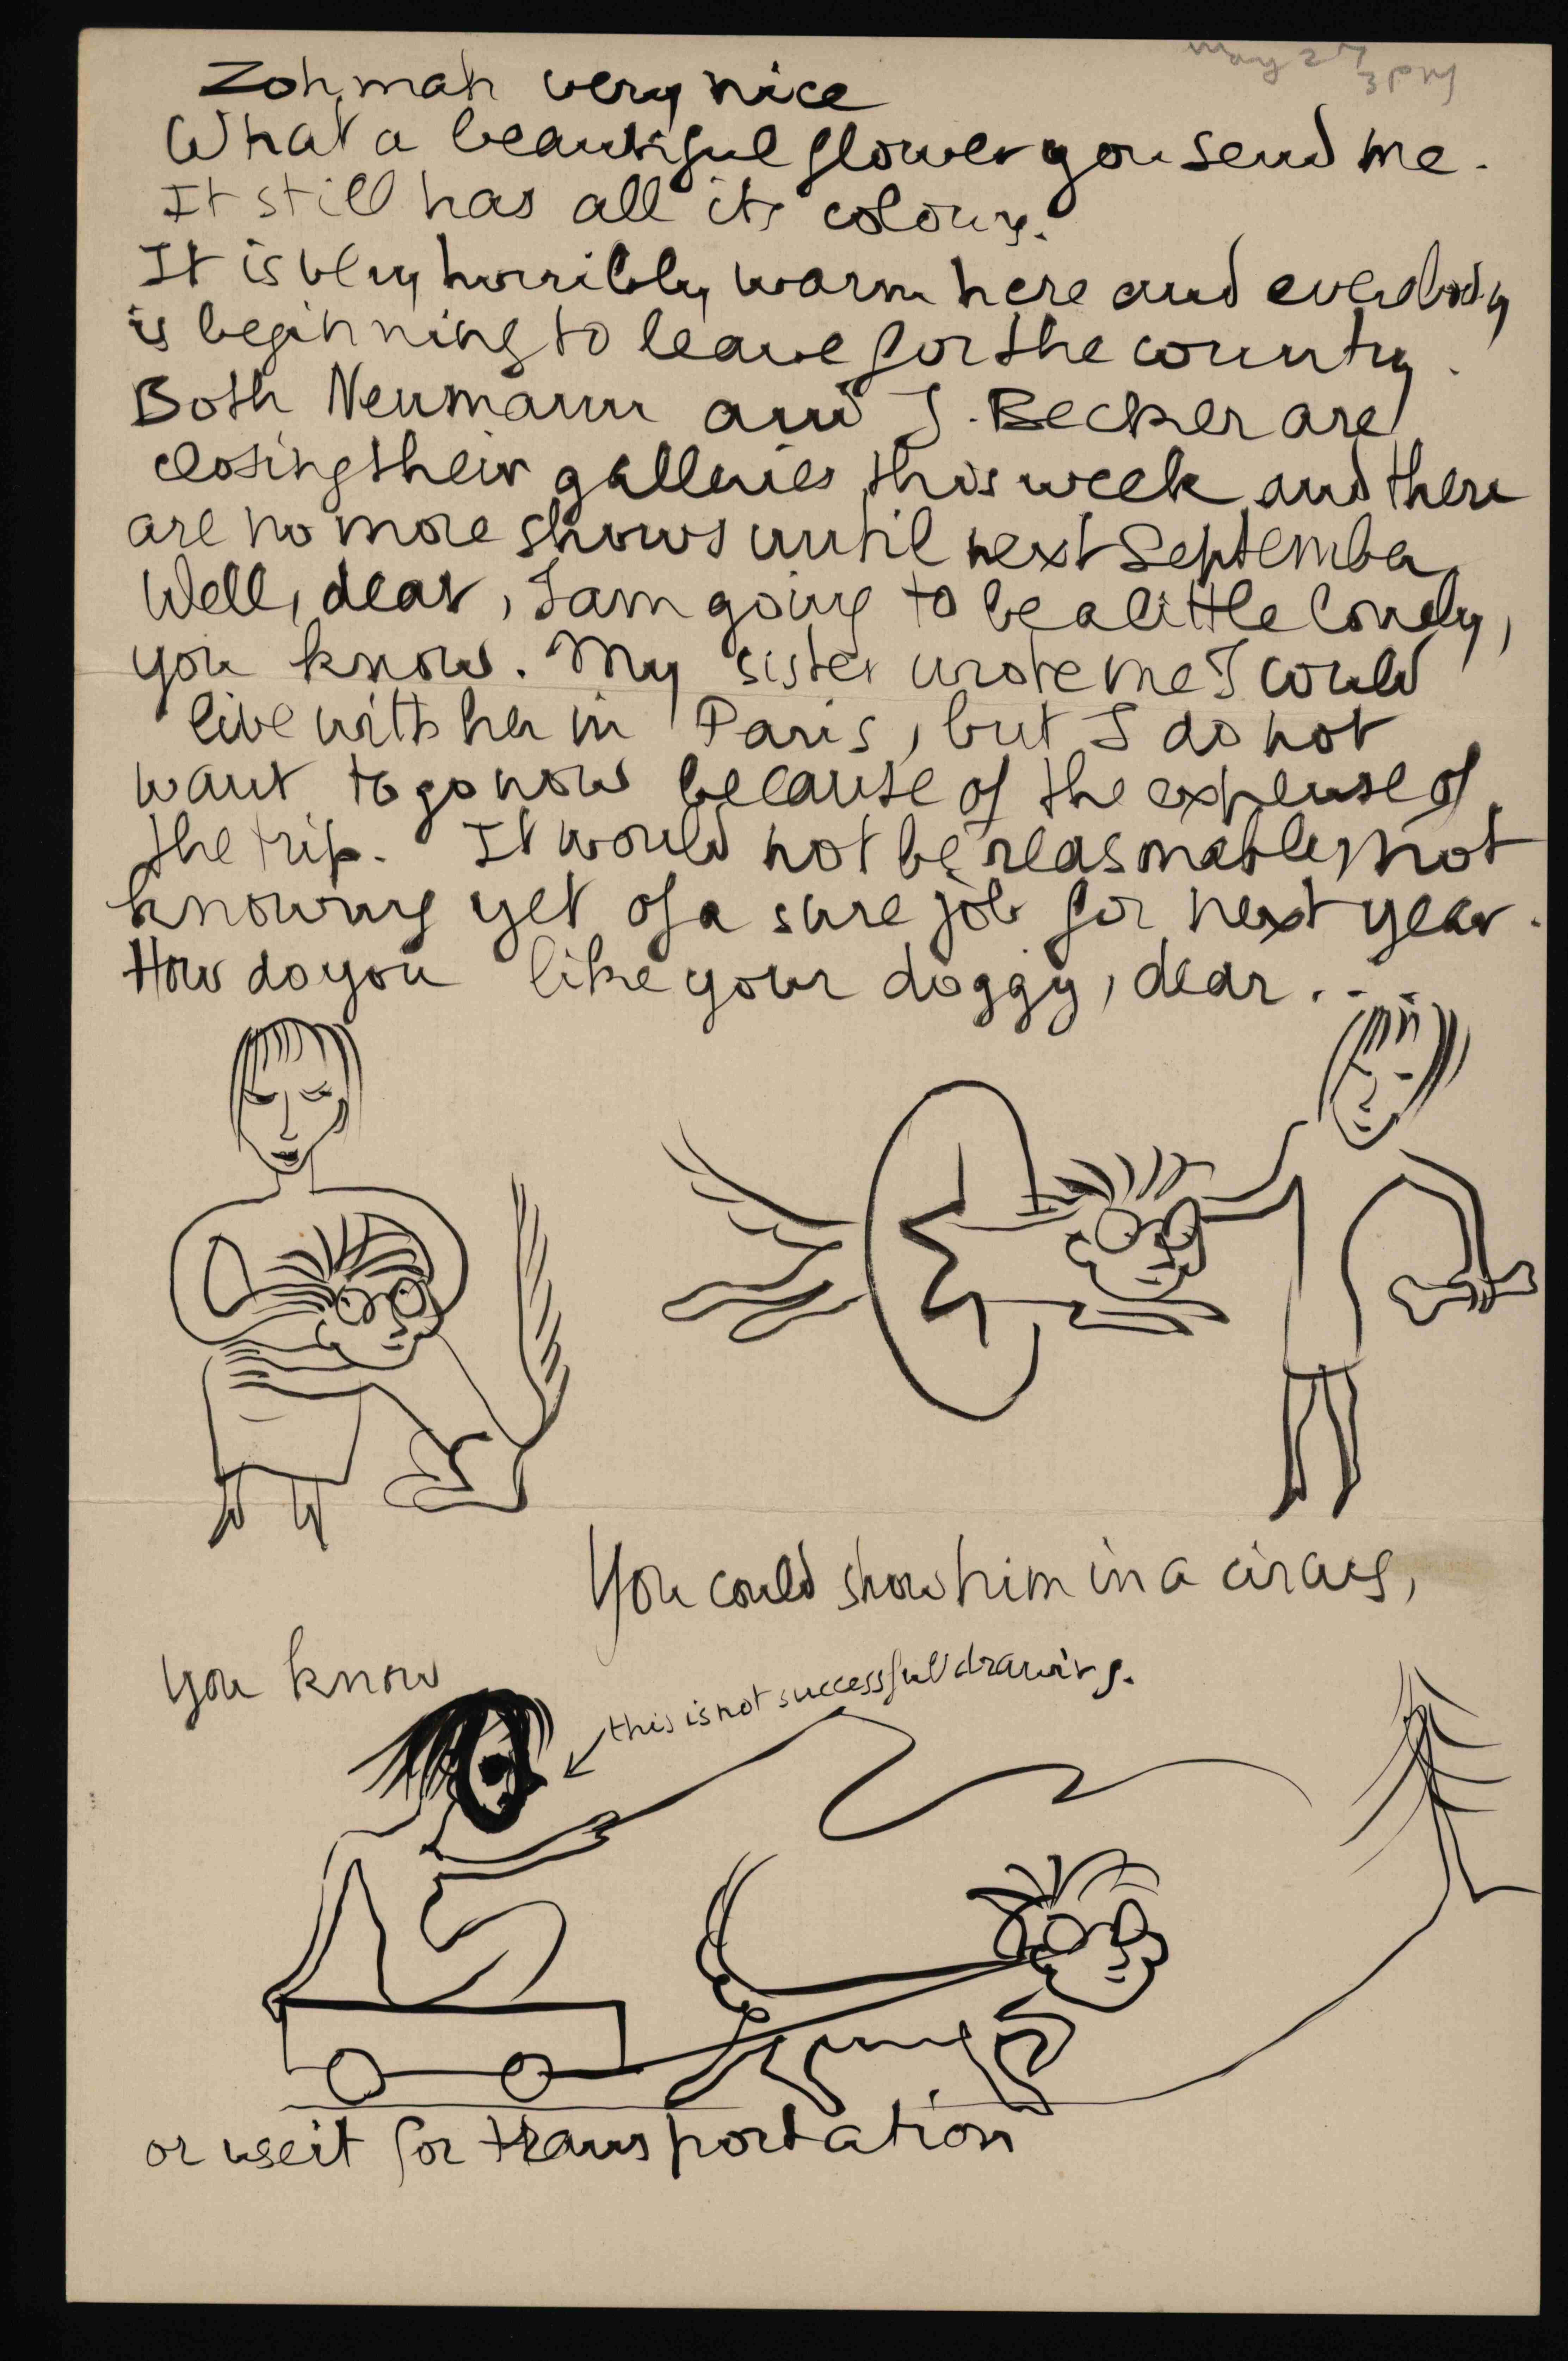 may 27
3 PM
Zohmah very nice
What a beautiful flower you send me.
It still has all its colours.
It is very horribly warm here and everybody
is beginning to leave for the country.
Both Neumann and J. Becker are
closing their galleries this week and there
are no more shows until next September
Well, dear, I am going to be a little lonely,
you know. My sister wrote me I could
live with her in Paris, but I do not
want to go now because of the expense of
the trip. It would not be reasonable, not
knowing yet of a sure job for next year.
How do you like your doggy, dear...
You could show him in a circus,
you know
this is not successfull drawing.
or use it for transportation